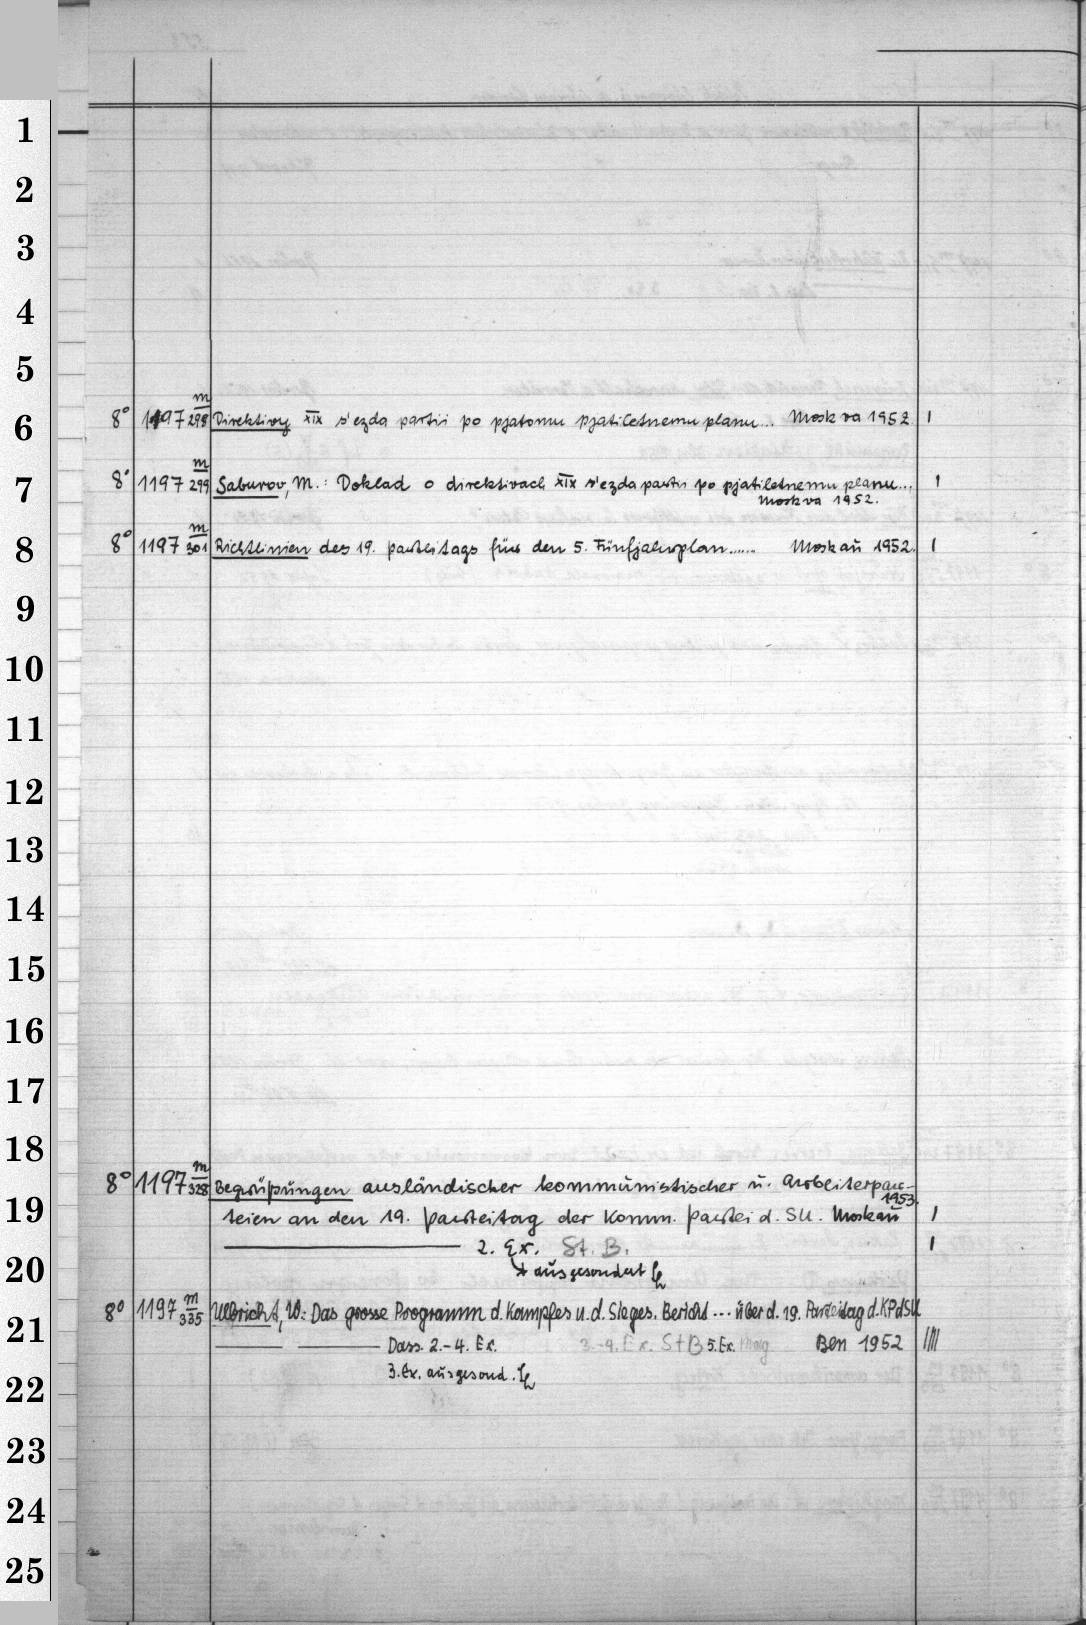 1
2
3
4
5
6
8° 1197 m/298 Direktivy XIX s'ezda partii po pjatomu pjatiletnemu planu... Moskva 1952 I
7
8° 1197 m/299 Saburov, M.: Doklad o direktivach XIX s'ezda partii po pjatiletnemu planu... I
Moskva 1952.
8
8° 1197 m/301 Richtlinien des 19. Parteitags für den 5. Fünfjahrplan...... Moskau 1952. I
9
10
11
12
13
14
15
16
17
18
8° 1197 m/328 Begrüßungen ausländischer kommunistischer u. Arbeiterpar-
1953.
19
teien an den 19. Parteitag der Komm. Partei d. SU. Moskau I
2. Ex. St. B. I
20
ausgesondert
8° 1197 m/335 Ulbricht, W.: Das grosse Programm d. Kampfes u. d. Sieges. Bericht ... über d. 19. Parteitag d. KPdSU
21
Dass. 2.-4. Ex. 3.-4. Ex. StB 5. Ex. Bln 1952 IIII
22
3. Ex. ausgesond.
23
24
25